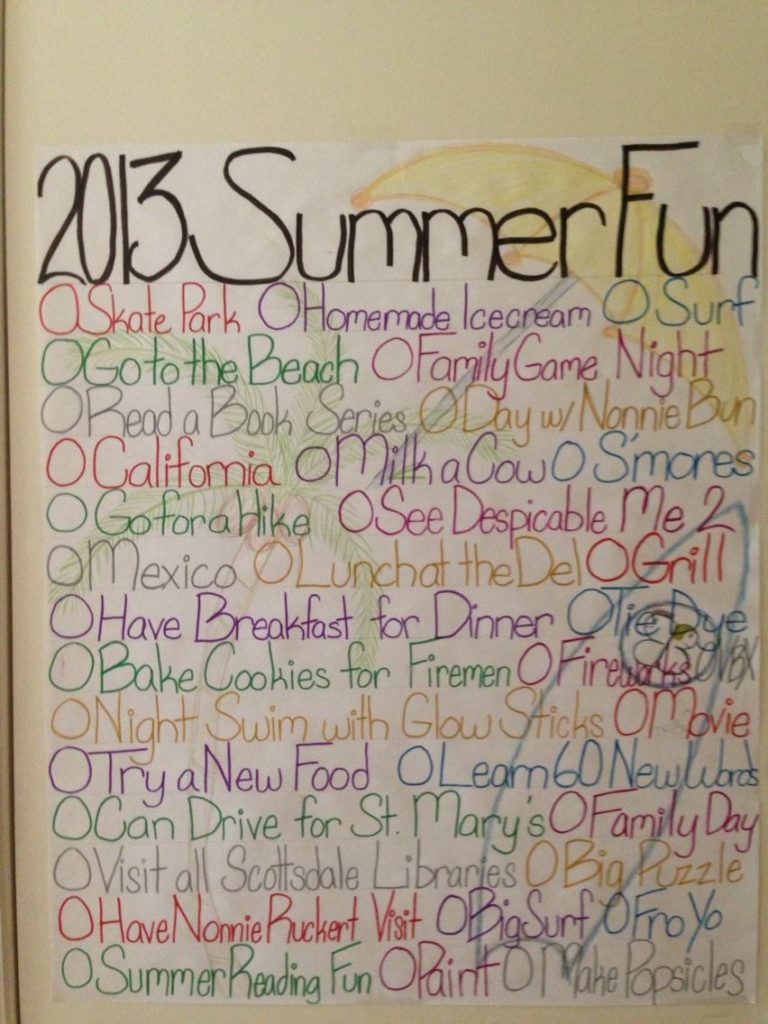 2013 Summer Fun
O Skate Park O Homemade Icecream O Surf
O Go to the Beach O Family Game Night
O Read a Book Series O Day w/ Nonnie Bun
O California O Milk a Cow O S'mores
O Go for a Hike O See Despicable Me 2
O Mexico O Lunch at the Del O Grill
O Have Breakfast for Dinner O Tie Dye
O Bake Cookies for Firemen O Fireworks O VBX
O Night Swim with Glow Sticks O Movie
O Try a New Food O Learn 60 New Words
O Can Drive for St. Mary's O Family Day
O Visit all Scottsdale Libraries O Big Puzzle
O Have Nonnie Ruckert Visit O Big Surf O Fro Yo
O Summer Reading Fun O Paint O Make Popsicles